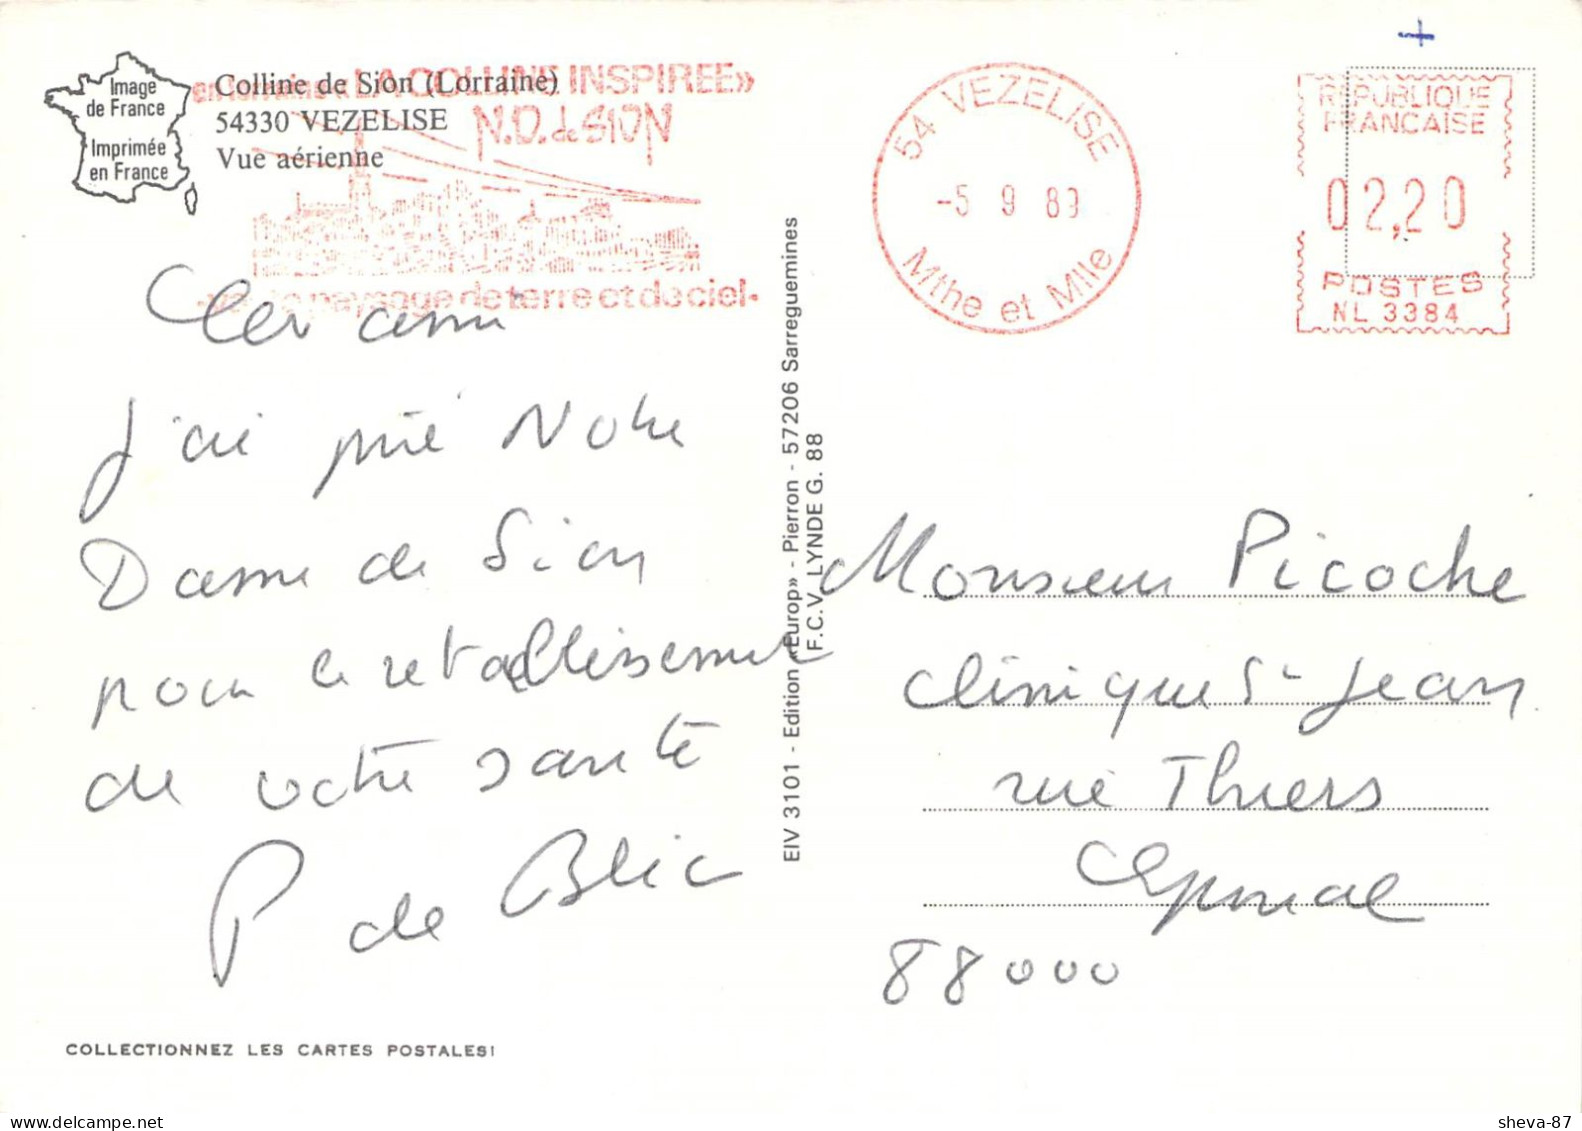 Image
de France
Imprimée
en France
Colline de Sion (Lorraine)
54330 VEZELISE
Vue aérienne
en lorraine «LA COLLINE INSPIREE»
N.D. de SION
paysage de terre et de ciel-
54 VEZELISE
-5 9 89
Mthe et Mlle
REPUBLIQUE
FRANCAISE
02,20
POSTES
NL 3384
Cher ami
J'ai prié Notre
Dame de Sion
pour le retablissement
de votre santé
P de Blic
EIV 3101 - Edition «Europ» - Pierron - 57206 Sarreguemines
F.C.V. LYNDE G. 88
Monsieur Picoche
Clinique St Jean
rue Thiers
Epinal
88000
COLLECTIONNEZ LES CARTES POSTALES!
sheva-87